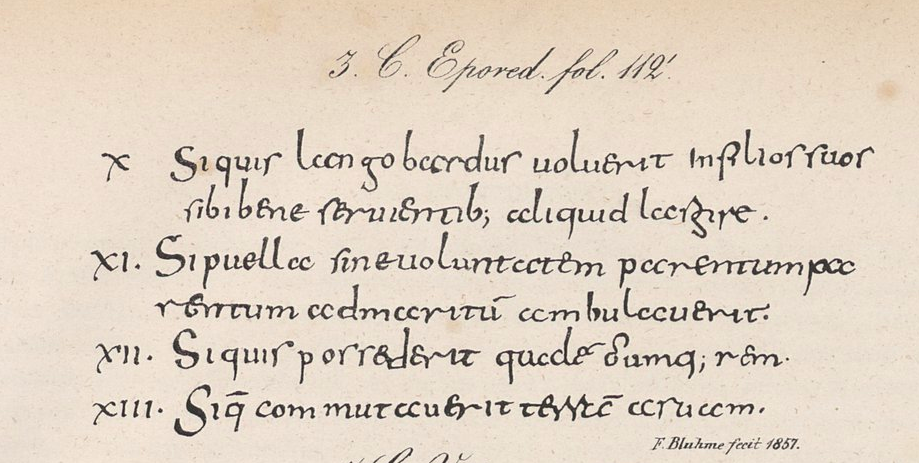 3. C. Epored. fol. 112'.
X Si quis langobardus uoluerit in filios suos
sibi bene seruientib; aliquid largire.
XI. Si puella sine uoluntatem parentum pa
rentum ad maritū ambulauerit.
XII. Si quis possederit qualē cumq; rem.
XIII. Si q̄ commutauerit terrā suam.
F. Bluhme fecit 1857.